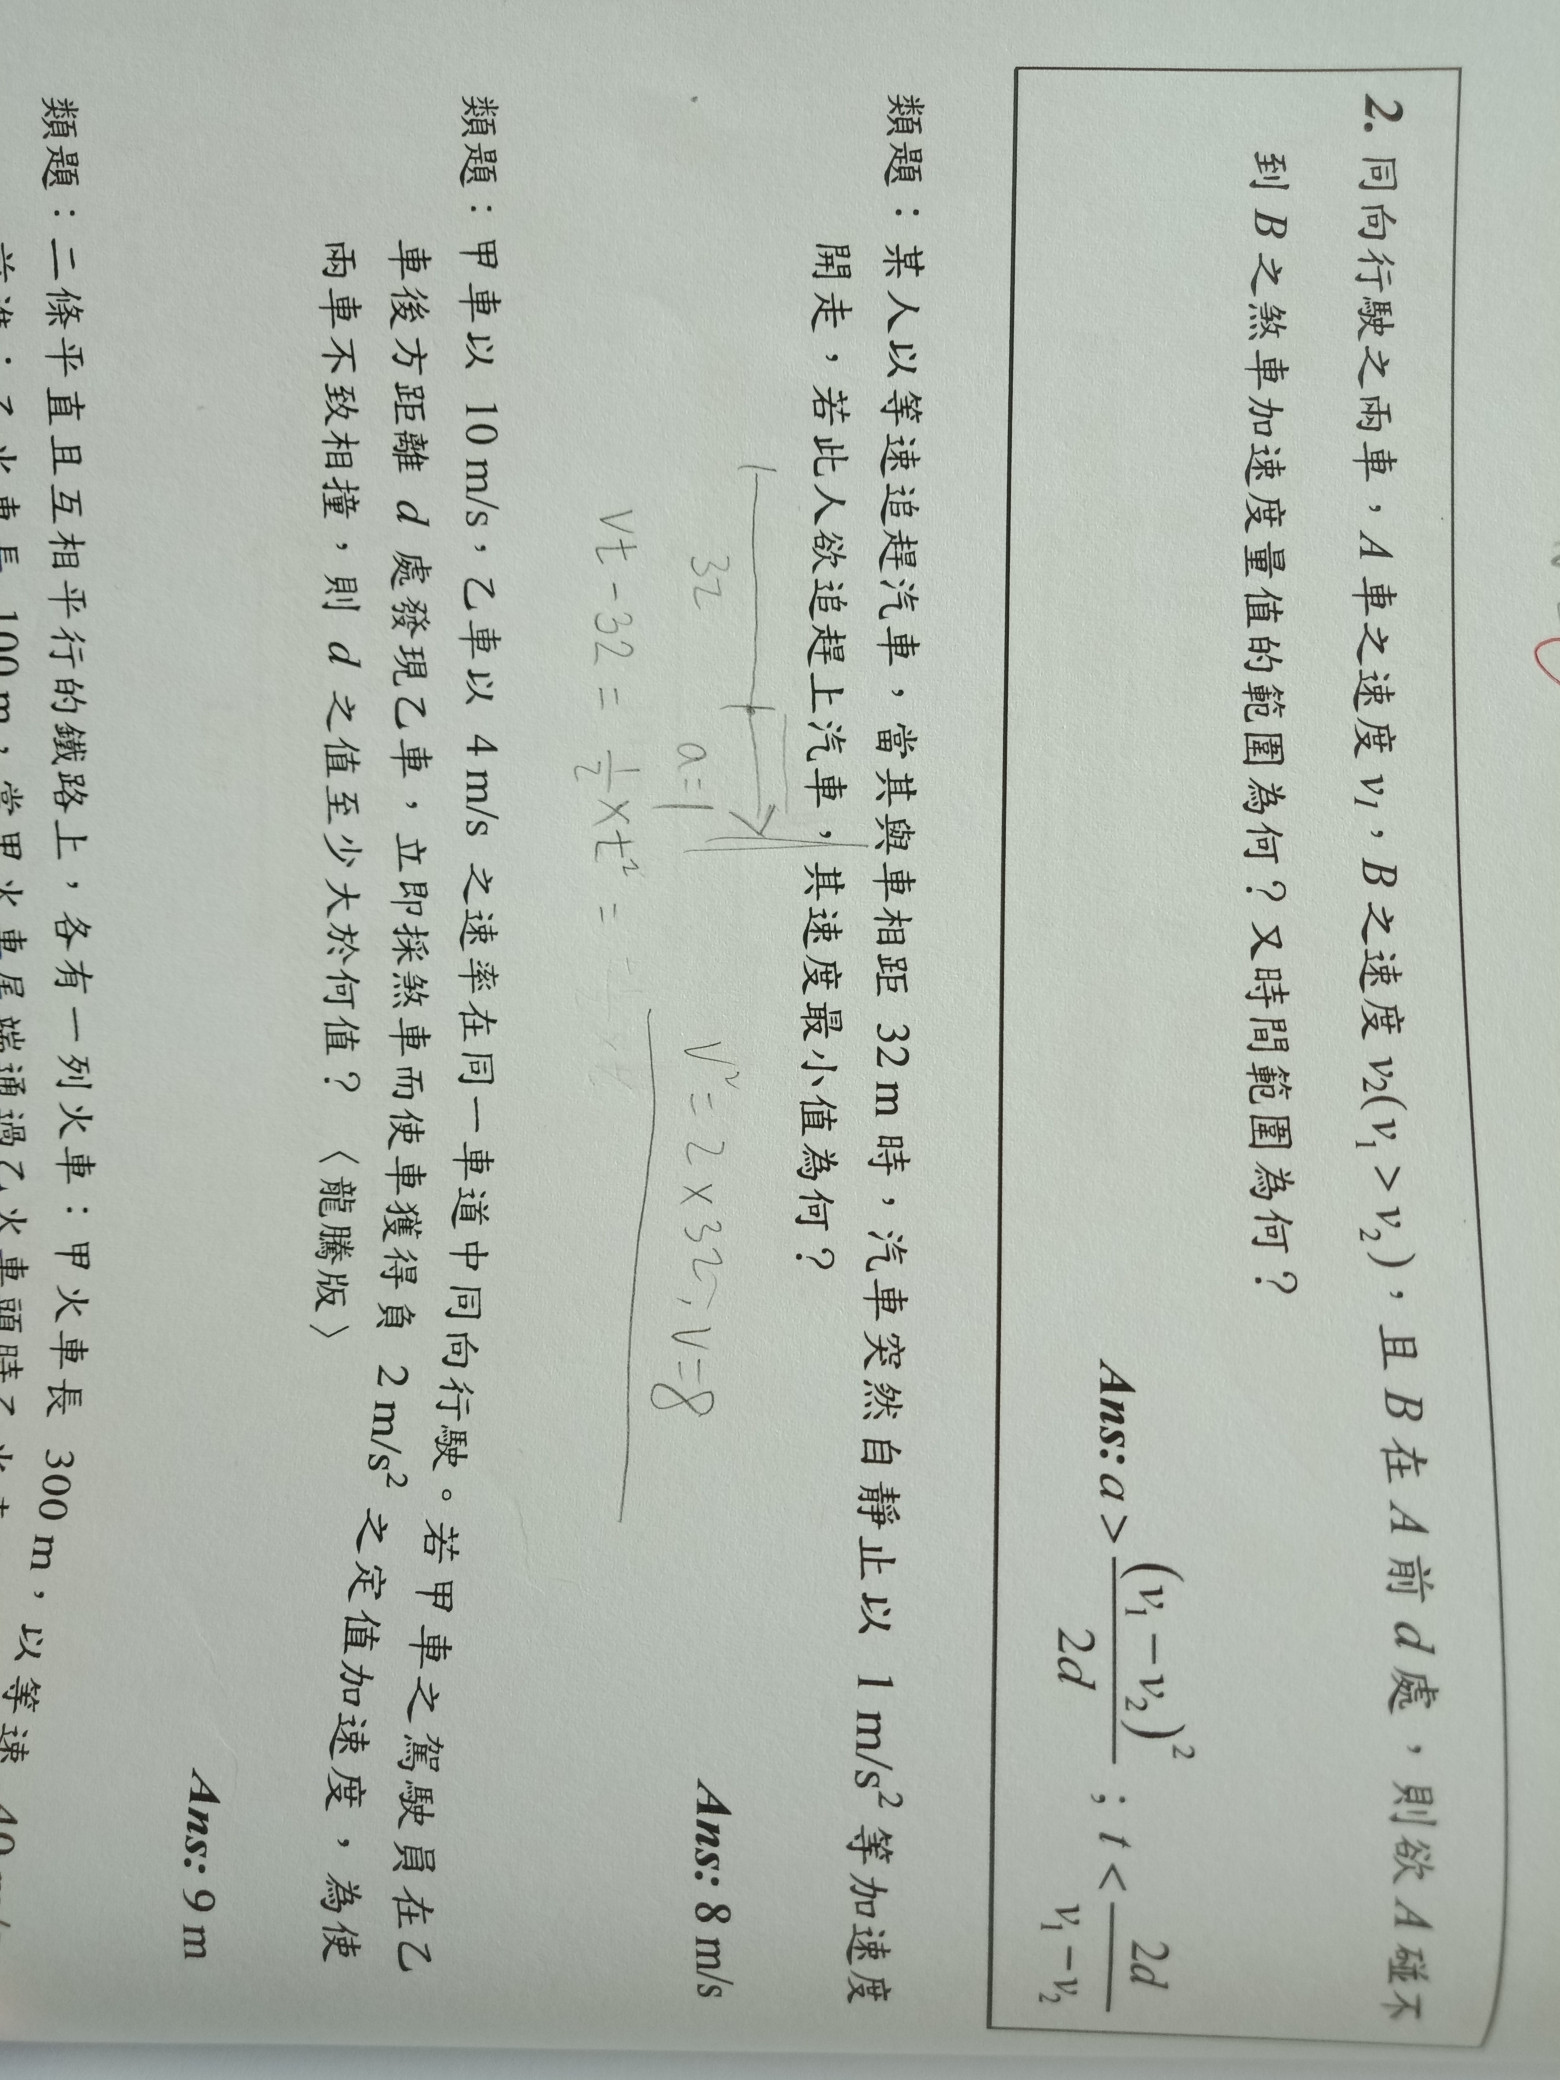 2. 同向行駛之兩車，A 車之速度 v₁，B 之速度 v₂(v₁ > v₂)，且 B 在 A 前 d 處，則欲 A 碰不
到 B 之煞車加速度量值的範圍為何？又時間範圍為何？
Ans: a > (v₁ − v₂)² / 2d ; t < 2d / (v₁ − v₂)
類題：某人以等速追趕汽車，當其與車相距 32 m 時，汽車突然自靜止以 1 m/s² 等加速度
開走，若此人欲追趕上汽車，其速度最小值為何？
32
a=1
v²=2×32, v=8
vt-32=½×t²=
Ans: 8 m/s
類題：甲車以 10 m/s，乙車以 4 m/s 之速率在同一車道中同向行駛。若甲車之駕駛員在乙
車後方距離 d 處發現乙車，立即採煞車而使車獲得負 2 m/s² 之定值加速度，為使
兩車不致相撞，則 d 之值至少大於何值？〈龍騰版〉
Ans: 9 m
類題：二條平直且互相平行的鐵路上，各有一列火車：甲火車長 300 m，以等速
100 m，當甲火車尾端通過乙火車頭時乙